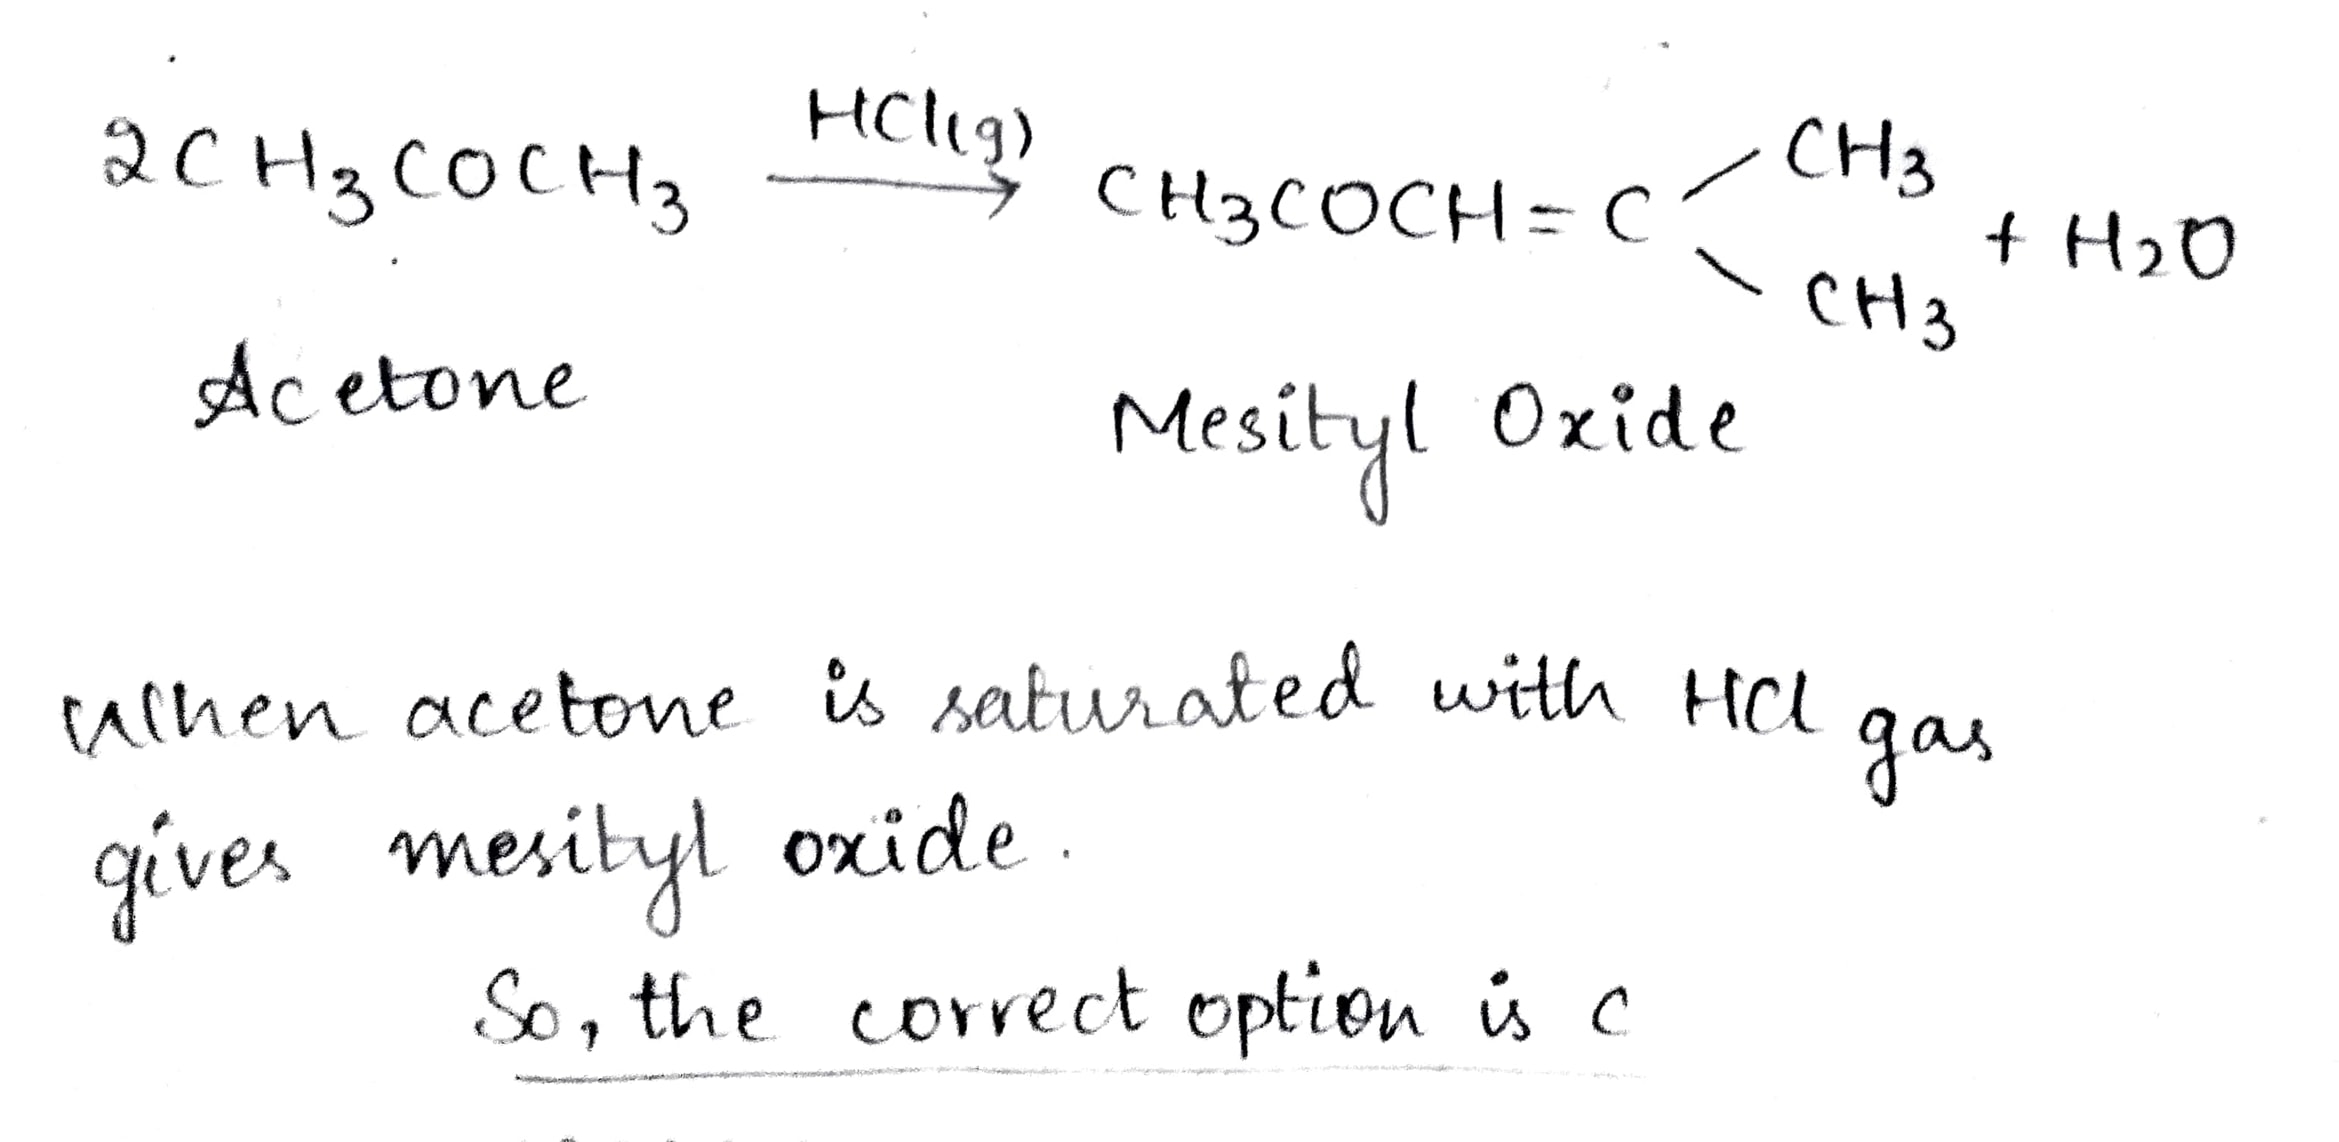 2CH₃COCH₃ HCl(g)→ CH₃COCH=C⟨CH₃ CH₃ + H₂O
Acetone Mesityl Oxide
When acetone is saturated with HCl gas
gives mesityl oxide.
So, the correct option is c